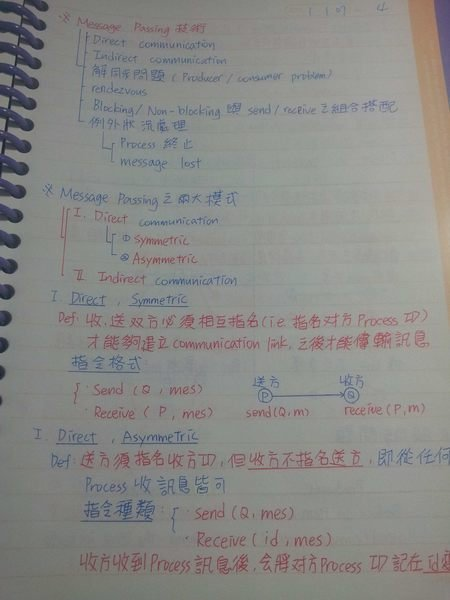 ※ Message Passing 技術
Direct communication
Indirect communication
解同步問題 (Producer / consumer problem)
rendezvous
Blocking / Non-blocking 與 send / receive 之組合搭配
例外狀況處理
Process 終止
message lost
※ Message Passing 之兩大模式
I. Direct communication
① Symmetric
② Asymmetric
II. Indirect communication
I. Direct , Symmetric
Def: 收,送双方必須相互指名(i.e. 指名对方 Process ID)
才能夠建立 communication link, 之後才能傳輸訊息
指令格式
· Send (Q, mes)
· Receive (P, mes)
送方 收方
P Q
send(Q,m) receive(P,m)
I. Direct , Asymmetric
Def: 送方須指名收方ID, 但收方不指名送方, 即從任何
Process 收訊息皆可
指令種類: · send (Q, mes)
· Receive (id, mes)
收方收到Process訊息後, 会將对方 Process ID 記在 id